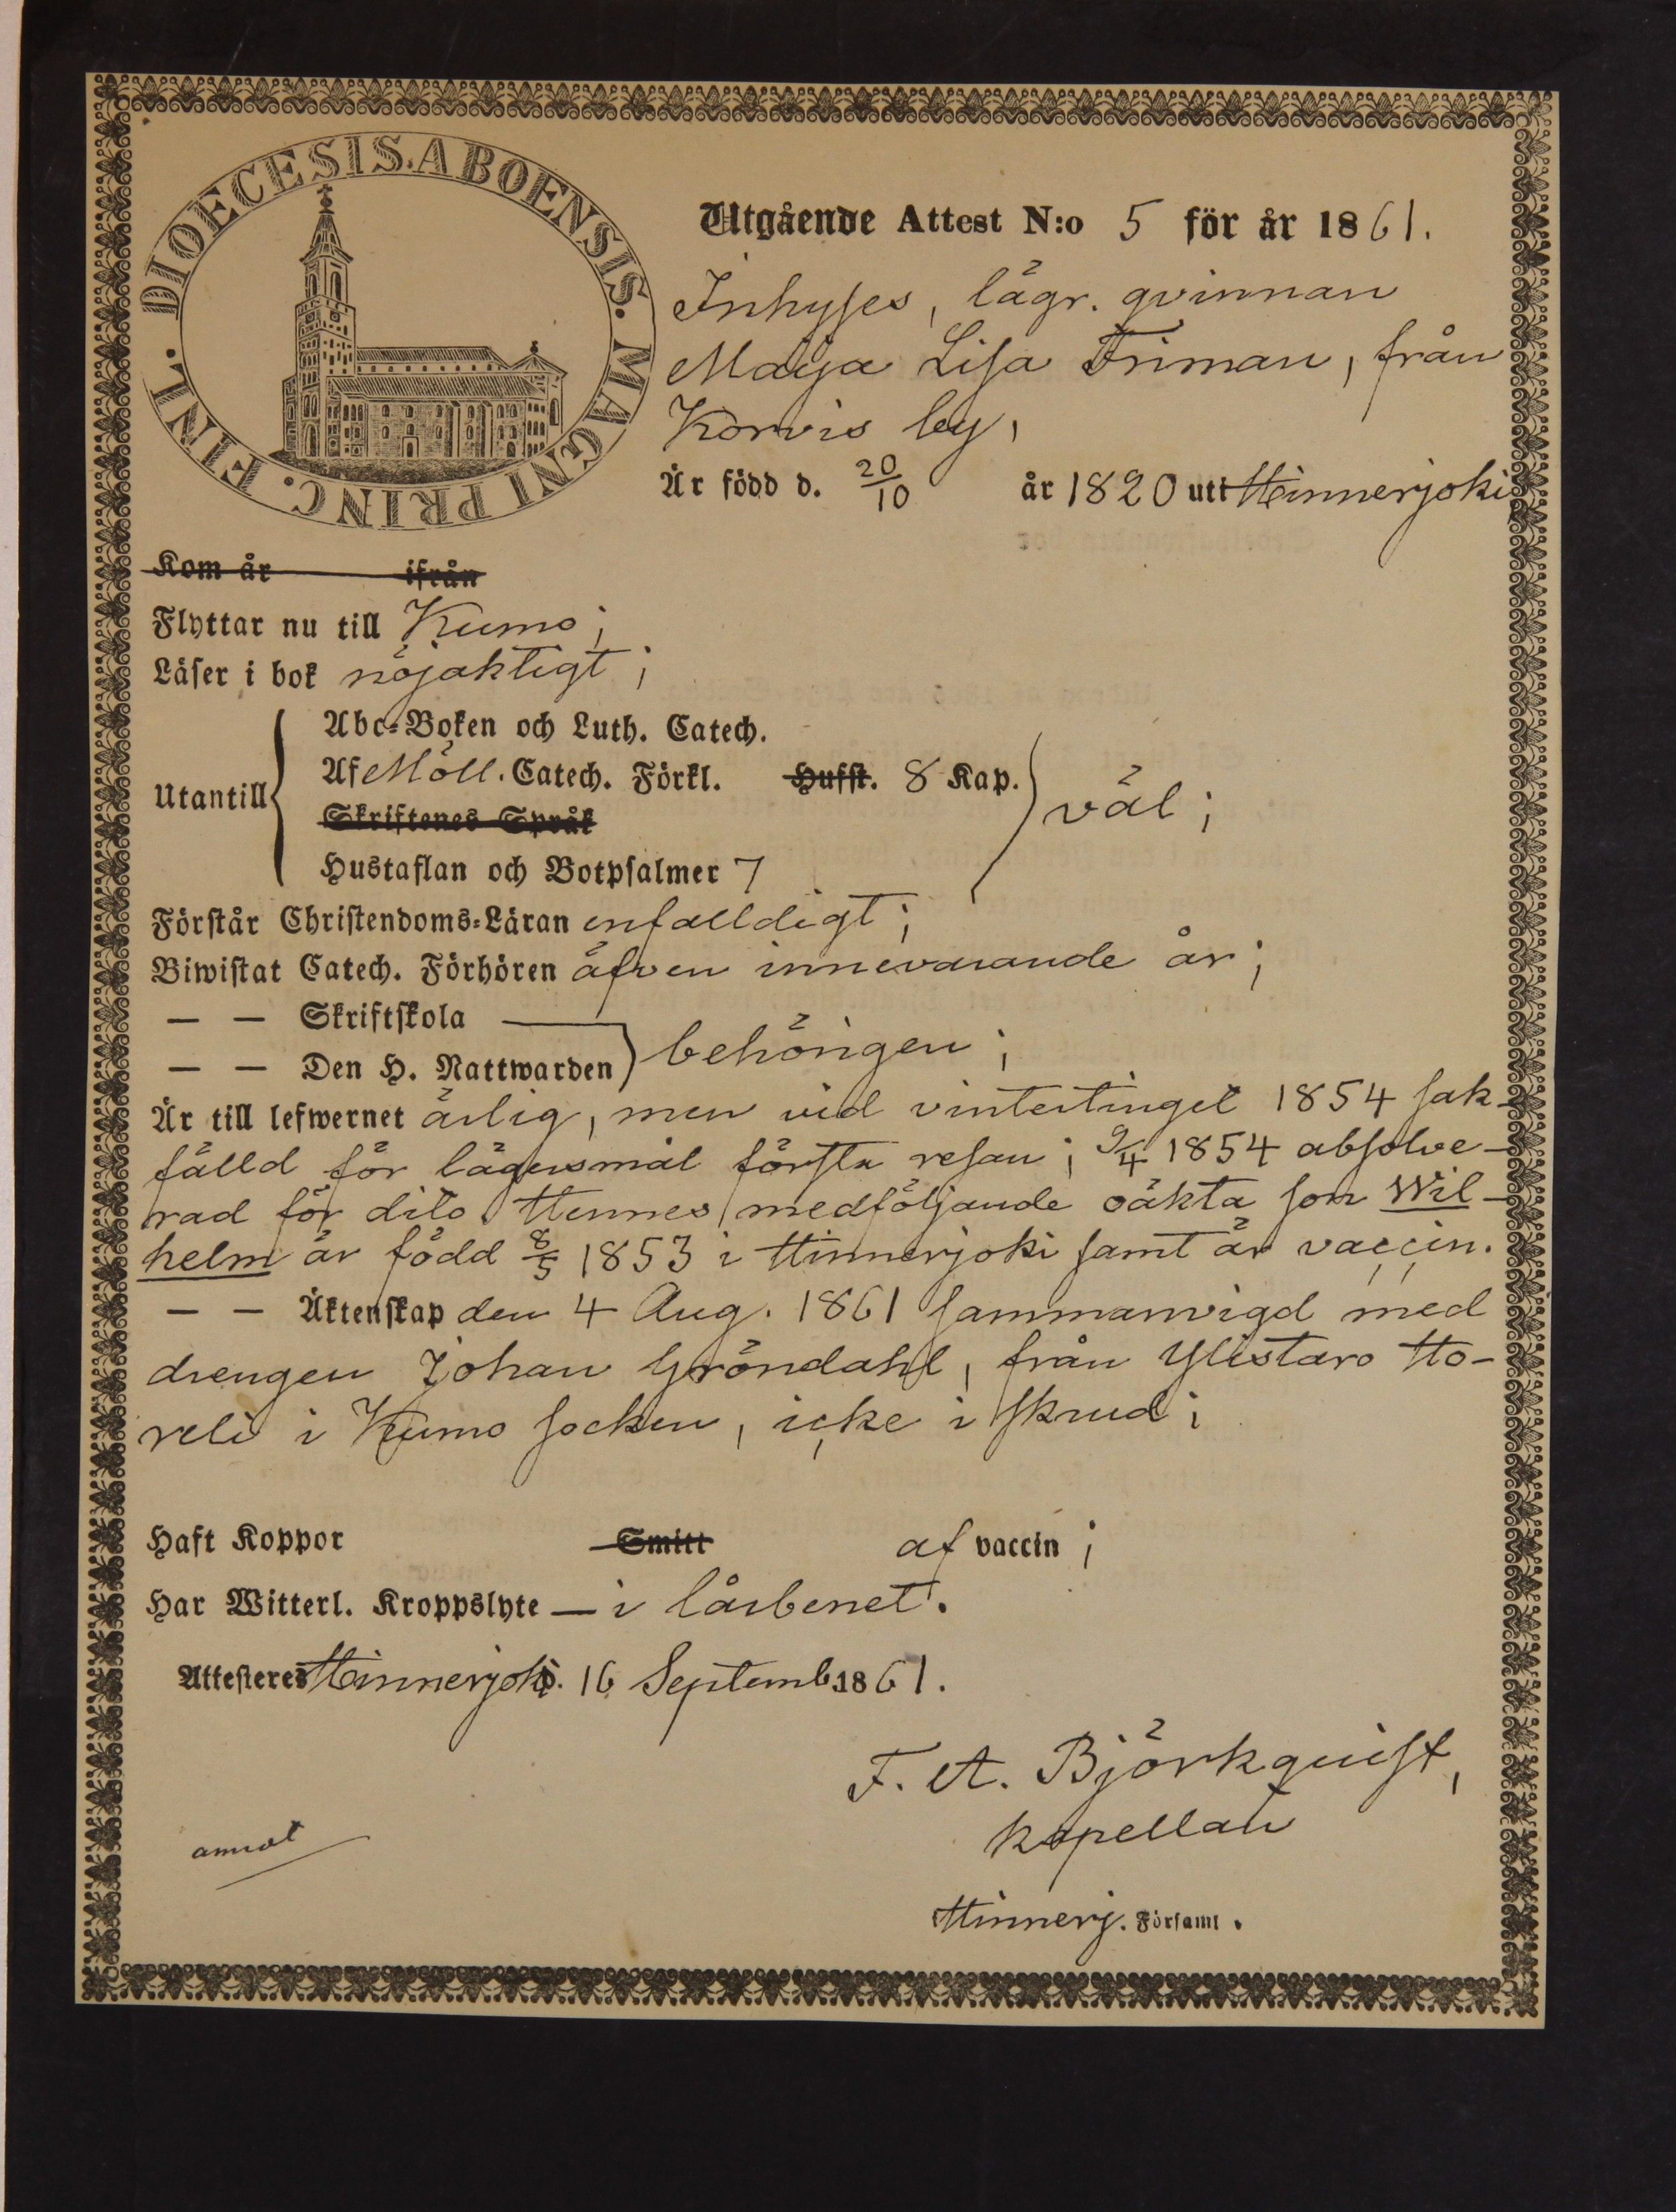 DIOECESIS. ABOENSIS. MAGNI PRINC. FINL.
Utgående Attest N:o 5 för år 1861.
Inhyses, lägr. qvinnan
Maija Lisa Friman, från
Korvis by,
Är född d. 20/10 år 1820 uti Hinnerjoki
Kom år ifrån
Flyttar nu till Kumo;
Läser i bok nöjaktigt;
Utantill
Abc-Boken och Luth. Catech.
Af Möll. Catech. Förkl. Hufst. 8 Kap.
väl;
Skriftenes Språk
Hustaflan och Botpsalmer 7
Förstår Christendoms-Läran enfalldigt;
Biwistat Catech. Förhören äfven innevarande år;
— — Skriftskola
— — Den H. Nattwarden behörigen;
Är till lefwernet ärlig, men vid vintertinget 1854 sak-
fälld för lägersmål första resan; 9/4 1854 absolve-
rad för dito. Hennes medföljande oäkta son Wil-
helm är född 8/5 1853 i Hinnerjoki samt är vaccin.
— — Äktenskap den 4 Aug. 1861 sammanvigd med
drengen Johan Gröndahl, från Ylistaro Ho-
reli i Kumo socken, icke i skrud;
Haft Koppor Smitt af vaccin;
Har Witterl. Kroppslyte — i lårbenet.
Attesteres Hinnerjoki d. 16 Septemb. 1861.
F. A. Björkquist,
kapellan
Hinnerj. Församl.
annot